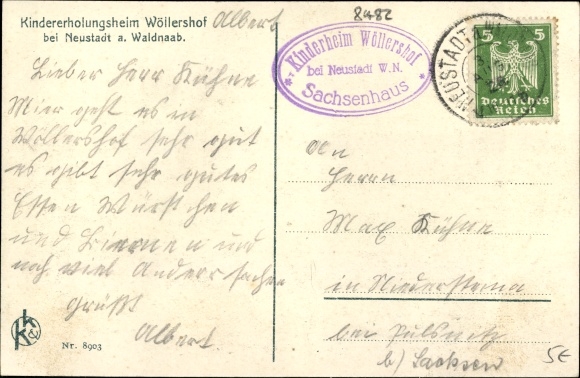 Kindererholungsheim Wöllershof
bei Neustadt a. Waldnaab.
Albert
8482
Kinderheim Wöllershof
bei Neustadt W.N.
Sachsenhaus
NEUSTADT
5 5
Deutsches
Reich
Lieber Herr Kühne
Mier geht es in
Wöllershof sehr gut
es gibt sehr gutes
Essen Würstchen
und Biernen und
noch viel Andere sachen
grüßt
Albert
An
Herrn
Max Kühne
in Niedersteina
bei Pulsnitz
b) Sachsen
KK&C
Nr. 8903
5€